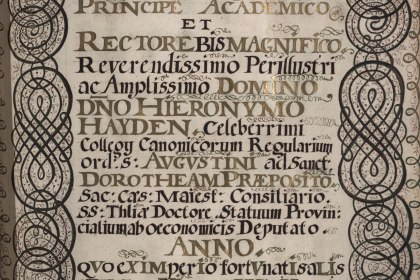 PRINCIPE ACADEMICO
ET
RECTORE BIS MAGNIFICO
Reverendissimo Perillustri
ac Amplissimo DOMINO
DNO HIERONYMO
HAYDEN, Celeberrimi
Collegy Canonicorum Regularium
ord:s: AUGUSTINI ad Sanct.
DOROTHEAM PRÆPOSITO
Sac: cæs: Maiest: Consiliario.
SS: Thliæ Doctore. Statuum Provin:
cialium ab oeconomicis Deputato
ANNO.
QVO EX IMPERIO fortVnatI salIs